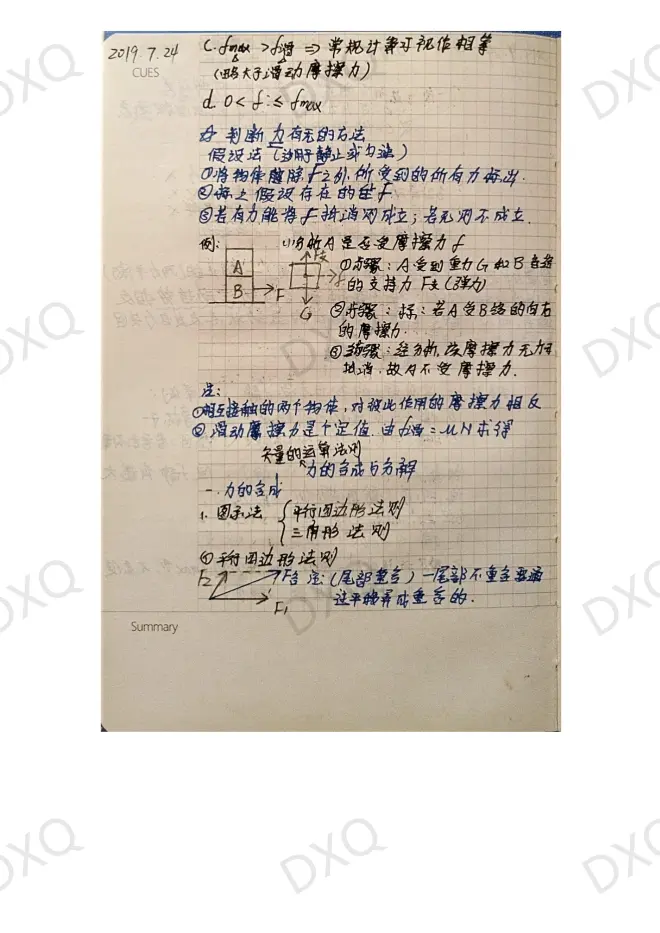 2019.7.24
CUES
C. fmax > f滑 ⇒ 常规计算可视作相等
(略大于滑动摩擦力)
d. 0 < f ≤ fmax
判断力有无的方法
假设法 (适用于静止或匀速)
①将物体除 f 之外,所受到的所有力标出.
②标上假设存在的 f
③若有力能将 f 抵消则成立;若无则不成立.
例:
A
B
F
(1)分析A是否受摩擦力 f
F支
f
G
①步骤:A受到重力G和B
的支持力 F支(弹力)
②步骤:标:若A受B给的向右
的摩擦力.
③步骤:经分析,该摩擦力无力
抵消,故A不受摩擦力.
注:
①相互接触的两个物体,对彼此作用的摩擦力相反
②滑动摩擦力是个定值.由 f滑=μN 求得
矢量的运算法则
力的合成与分解
一.力的合成
1. 图示法 { 平行四边形法则
三角形法则
①平行四边形法则
F2
F合
F1
注:(尾部重合)—尾部不重合要通
过平移弄成重合的.
Summary
DXQ
DXQ
DXQ
DXQ
DXQ
DXQ
DXQ
DXQ
DXQ
DXQ
DXQ
DXQ